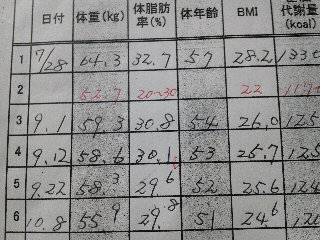 日付 体重(kg) 体脂肪率(%) 体年齢 BMI 代謝量(kcal)
1 7/28 64.3 32.7 57 28.2
2 52.7 20~30 22
3 9.1 59.3 30.8 54 26.0 125
4 9.12 58.6 30.1 53 25.7 125
5 9.22 58.3 29.6 52 25.6 124
6 10.8 55.9 29.8 51 24.6